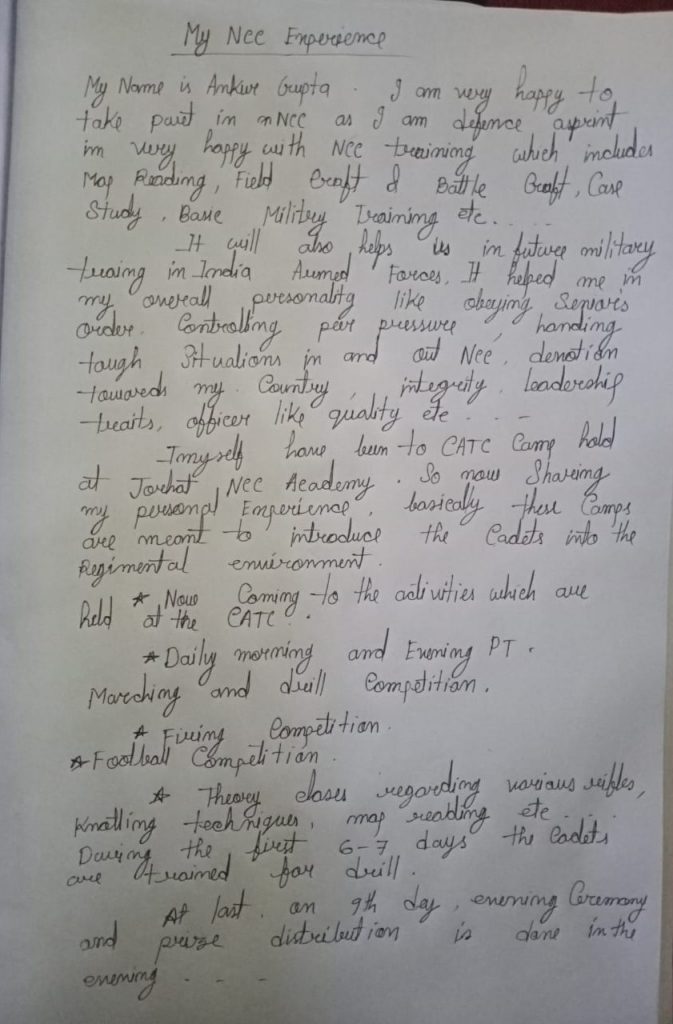 My Ncc Experience
My Name is Ankur Gupta. I am very happy to
take part in nNCC as I am defence asprint
im very happy with NCC training which includes
Map Reading, Field Craft & Battle Craft, Case
Study, Basic Militry Training etc.....
It will also helps us in future military
traing in India Armed Forces. It helped me in
my overall personality like obeying Seniors
order. Controlling peer pressure, handing
tough Situations in and out Ncc, devotion
towards my Country, integrity, leadership
traits, officer like quality etc . . -
I myself have been to CATC Camp hold
at Jorhat, NCC Academy. So now Sharing
my personal Experience, basically these Camps
are meant to introduce the Cadets into the
Regimental environment.
* Now Coming to the activities which are
held at the CATC..
* Daily morning and Evening PT.
Marching and drill Competition.
* Firing Competition.
* Football Competition.
* Theory clases regarding various rifles,
Knotting techniques, map reading etc....
During the first 6-7 days the Cadets
are trained for drill.
At last. on 9th day, evening Ceremony
and prize distribution is done in the
evening - - - -